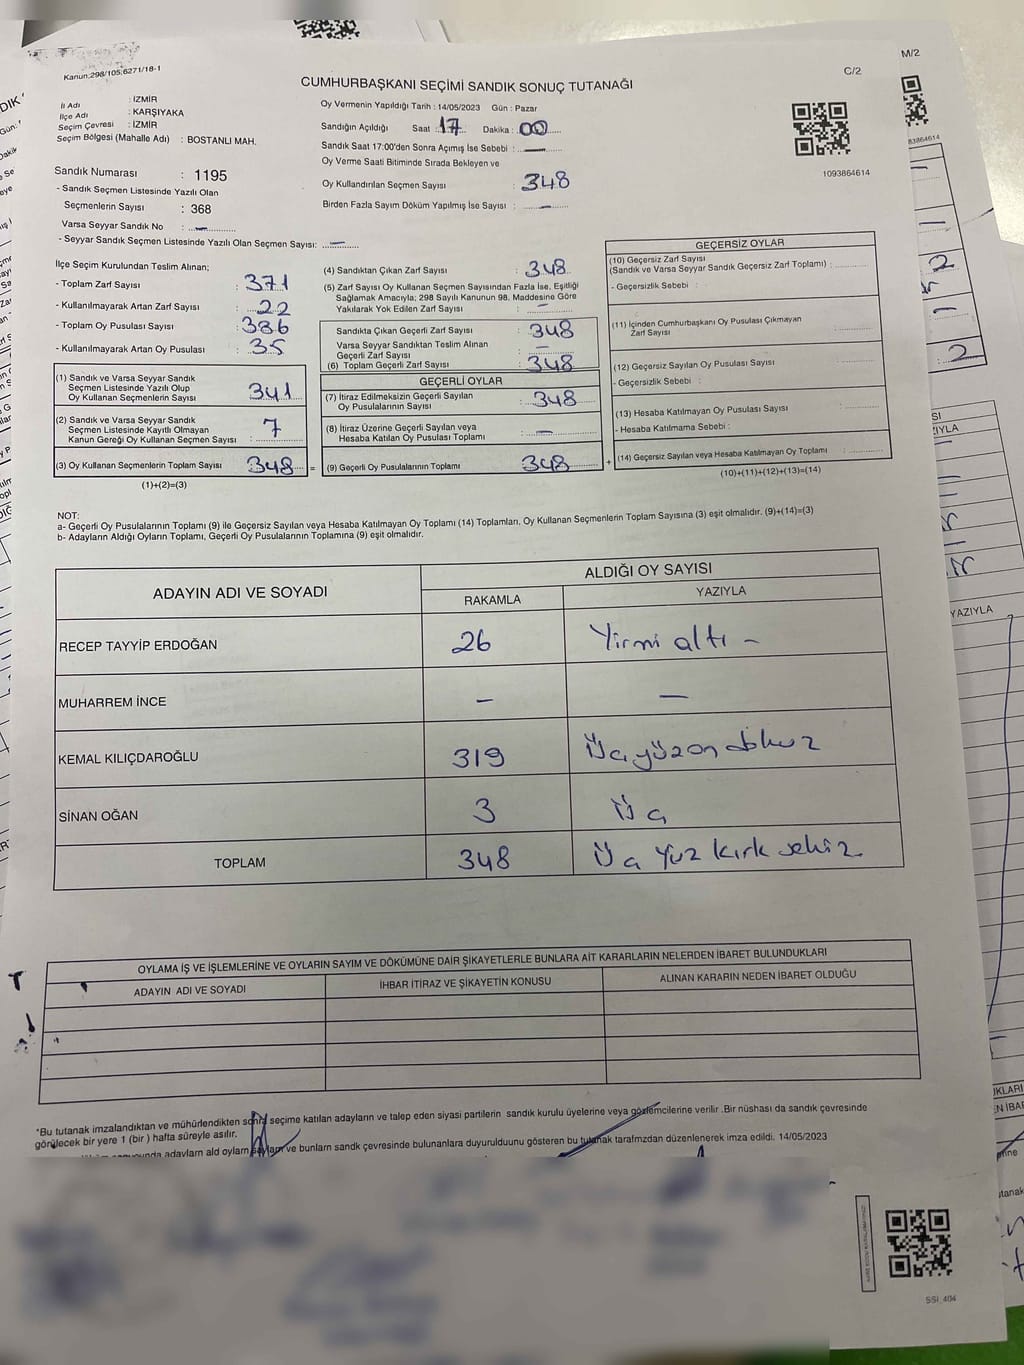 Kanun:298/105;6271/18-1
M/2
C/2
CUMHURBAŞKANI SEÇİMİ SANDIK SONUÇ TUTANAĞI
İl Adı : İZMİR
İlçe Adı : KARŞIYAKA
Seçim Çevresi : İZMİR
Seçim Bölgesi (Mahalle Adı) : BOSTANLI MAH.
Oy Vermenin Yapıldığı Tarih : 14/05/2023 Gün : Pazar
Sandığın Açıldığı Saat : 17 Dakika : 00
Sandık Saat 17:00'den Sonra Açımış İse Sebebi : —
Oy Verme Saati Bitiminde Sırada Bekleyen ve
Oy Kullandırılan Seçmen Sayısı : 348
Birden Fazla Sayım Döküm Yapılmış İse Sayısı : —
1093864614
83864614
Sandık Numarası : 1195
- Sandık Seçmen Listesinde Yazılı Olan
Seçmenlerin Sayısı : 368
Varsa Seyyar Sandık No : —
- Seyyar Sandık Seçmen Listesinde Yazılı Olan Seçmen Sayısı: —
İlçe Seçim Kurulundan Teslim Alınan;
- Toplam Zarf Sayısı : 371
- Kullanılmayarak Artan Zarf Sayısı : 22
- Toplam Oy Pusulası Sayısı : 386
- Kullanılmayarak Artan Oy Pusulası : 35
(1) Sandık ve Varsa Seyyar Sandık
Seçmen Listesinde Yazılı Olup
Oy Kullanan Seçmenlerin Sayısı : 341
(2) Sandık ve Varsa Seyyar Sandık
Seçmen Listesinde Kayıtlı Olmayan
Kanun Gereği Oy Kullanan Seçmen Sayısı : 7
(3) Oy Kullanan Seçmenlerin Toplam Sayısı : 348 =
(1)+(2)=(3)
(4) Sandıktan Çıkan Zarf Sayısı : 348
(5) Zarf Sayısı Oy Kullanan Seçmen Sayısından Fazla İse, Eşitliği
Sağlamak Amacıyla; 298 Sayılı Kanunun 98. Maddesine Göre
Yakılarak Yok Edilen Zarf Sayısı : —
Sandıkta Çıkan Geçerli Zarf Sayısı : 348
Varsa Seyyar Sandıktan Teslim Alınan
Geçerli Zarf Sayısı : —
(6) Toplam Geçerli Zarf Sayısı : 348
GEÇERLİ OYLAR
(7) İtiraz Edilmeksizin Geçerli Sayılan
Oy Pusulalarının Sayısı : 348
(8) İtiraz Üzerine Geçerli Sayılan veya
Hesaba Katılan Oy Pusulası Toplamı : —
(9) Geçerli Oy Pusulalarının Toplamı : 348 +
GEÇERSİZ OYLAR
(10) Geçersiz Zarf Sayısı
(Sandık ve Varsa Seyyar Sandık Geçersiz Zarf Toplamı) :
- Geçersizlik Sebebi :
(11) İçinden Cumhurbaşkanı Oy Pusulası Çıkmayan
Zarf Sayısı :
(12) Geçersiz Sayılan Oy Pusulası Sayısı :
- Geçersizlik Sebebi :
(13) Hesaba Katılmayan Oy Pusulası Sayısı :
- Hesaba Katılmama Sebebi :
(14) Geçersiz Sayılan veya Hesaba Katılmayan Oy Toplamı :
(10)+(11)+(12)+(13)=(14)
NOT:
a- Geçerli Oy Pusulalarının Toplamı (9) ile Geçersiz Sayılan veya Hesaba Katılmayan Oy Toplamı (14) Toplamları, Oy Kullanan Seçmenlerin Toplam Sayısına (3) eşit olmalıdır. (9)+(14)=(3)
b- Adayların Aldığı Oyların Toplamı, Geçerli Oy Pusulalarının Toplamına (9) eşit olmalıdır.
ADAYIN ADI VE SOYADI
ALDIĞI OY SAYISI
RAKAMLA
YAZIYLA
RECEP TAYYİP ERDOĞAN 26 Yirmi altı —
MUHARREM İNCE — —
KEMAL KILIÇDAROĞLU 319 Üç yüz on dokuz
SİNAN OĞAN 3 Üç
TOPLAM 348 Üç Yüz kırk sekiz
YAZIYLA
OYLAMA İŞ VE İŞLEMLERİNE VE OYLARIN SAYIM VE DÖKÜMÜNE DAİR ŞİKAYETLERLE BUNLARA AİT KARARLARIN NELERDEN İBARET BULUNDUKLARI
ADAYIN ADI VE SOYADI
İHBAR İTİRAZ VE ŞİKAYETİN KONUSU
ALINAN KARARIN NEDEN İBARET OLDUĞU
*Bu tutanak imzalandıktan ve mühürlendikten sonra seçime katılan adayların ve talep eden siyasi partilerin sandık kurulu üyelerine veya gözlemcilerine verilir .Bir nüshası da sandık çevresinde
görülecek bir yere 1 (bir ) hafta süreyle asılır.
adayların ald oyların ve bunların sandk çevresinde bulunanlara duyurulduunu gösteren bu tutanak tarafmzdan düzenlenerek imza edildi. 14/05/2023
SSI_404